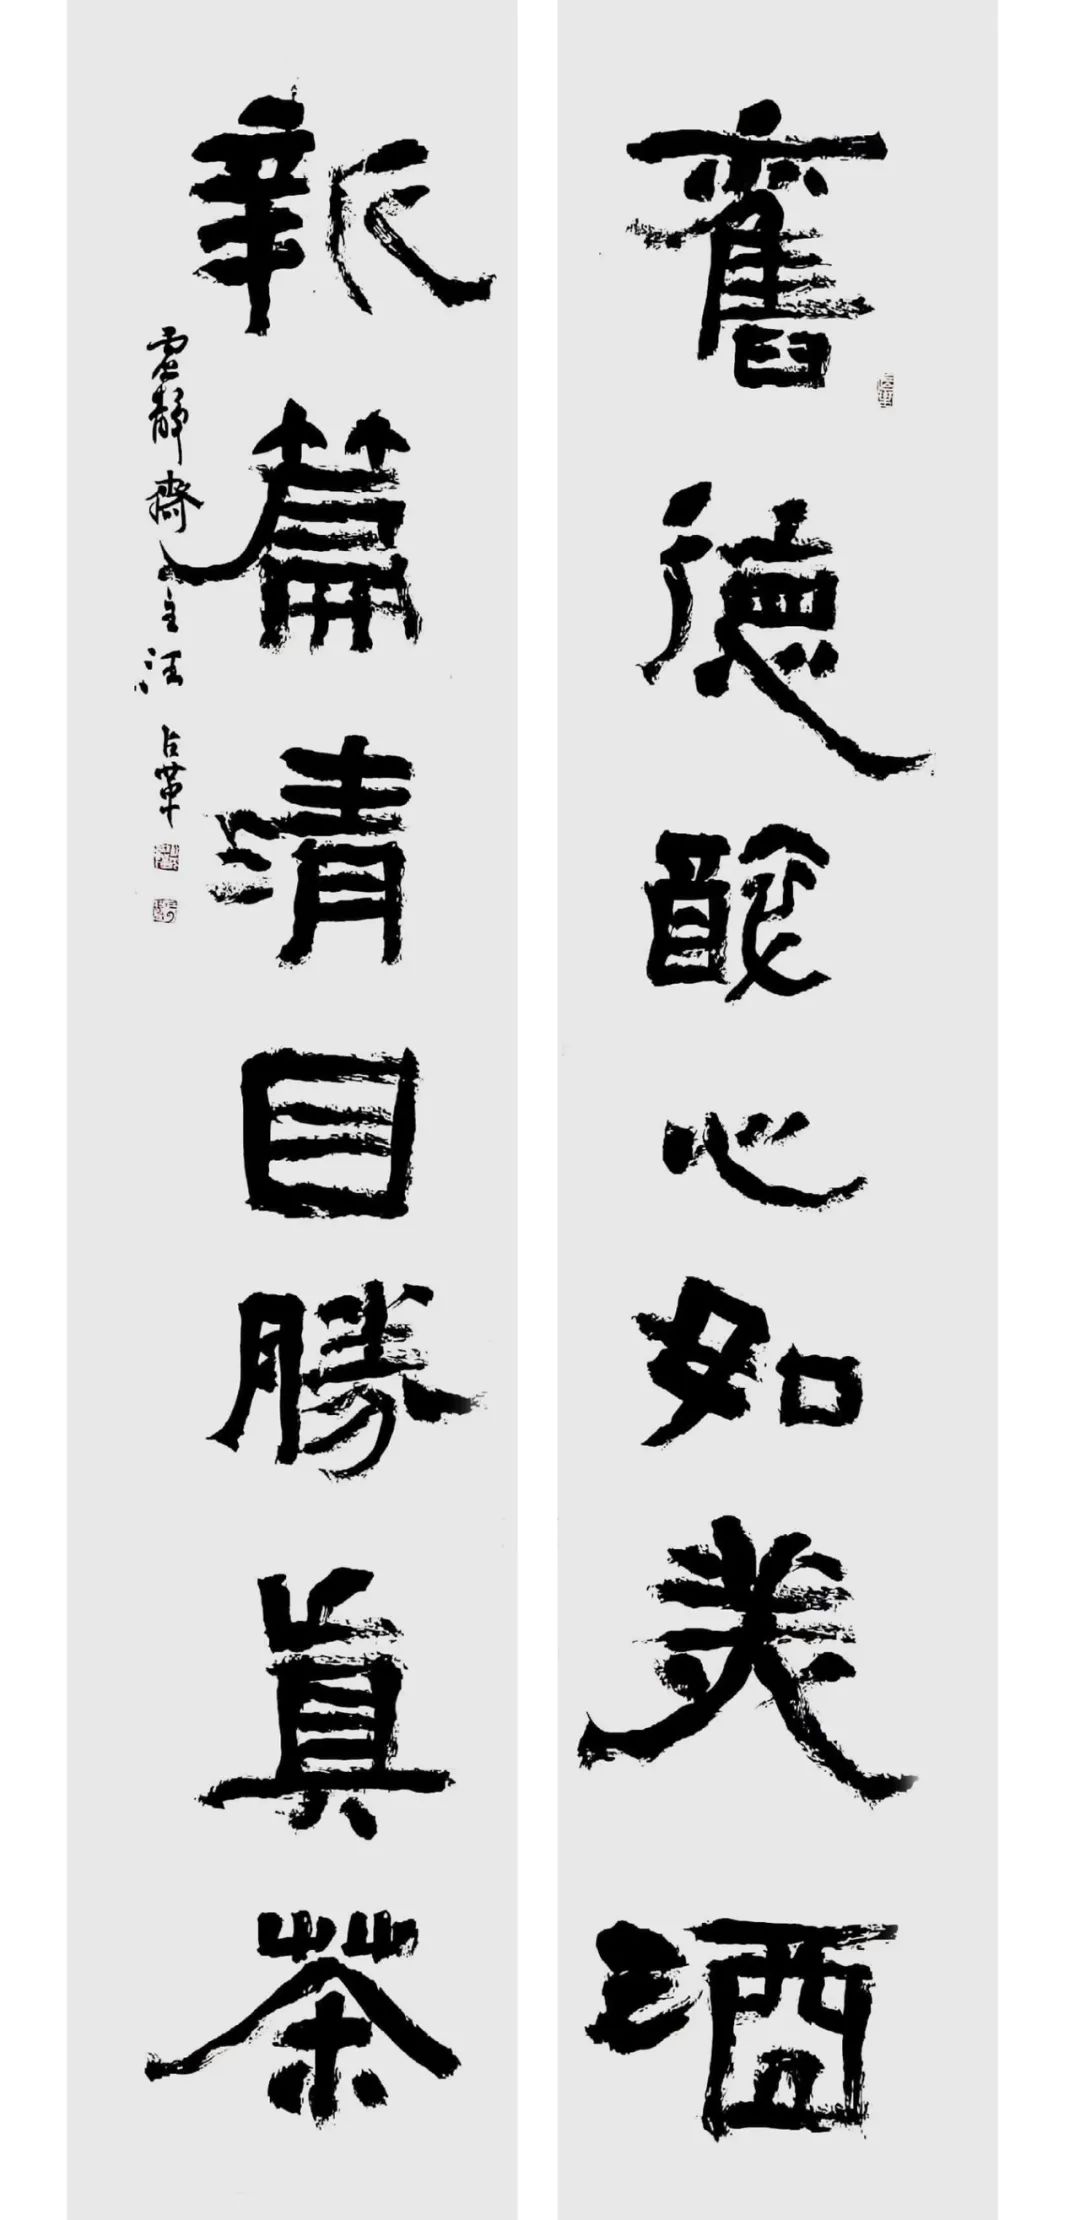 舊德醉心如美酒
新篇清目勝眞茶
虛靜齋主汪占革